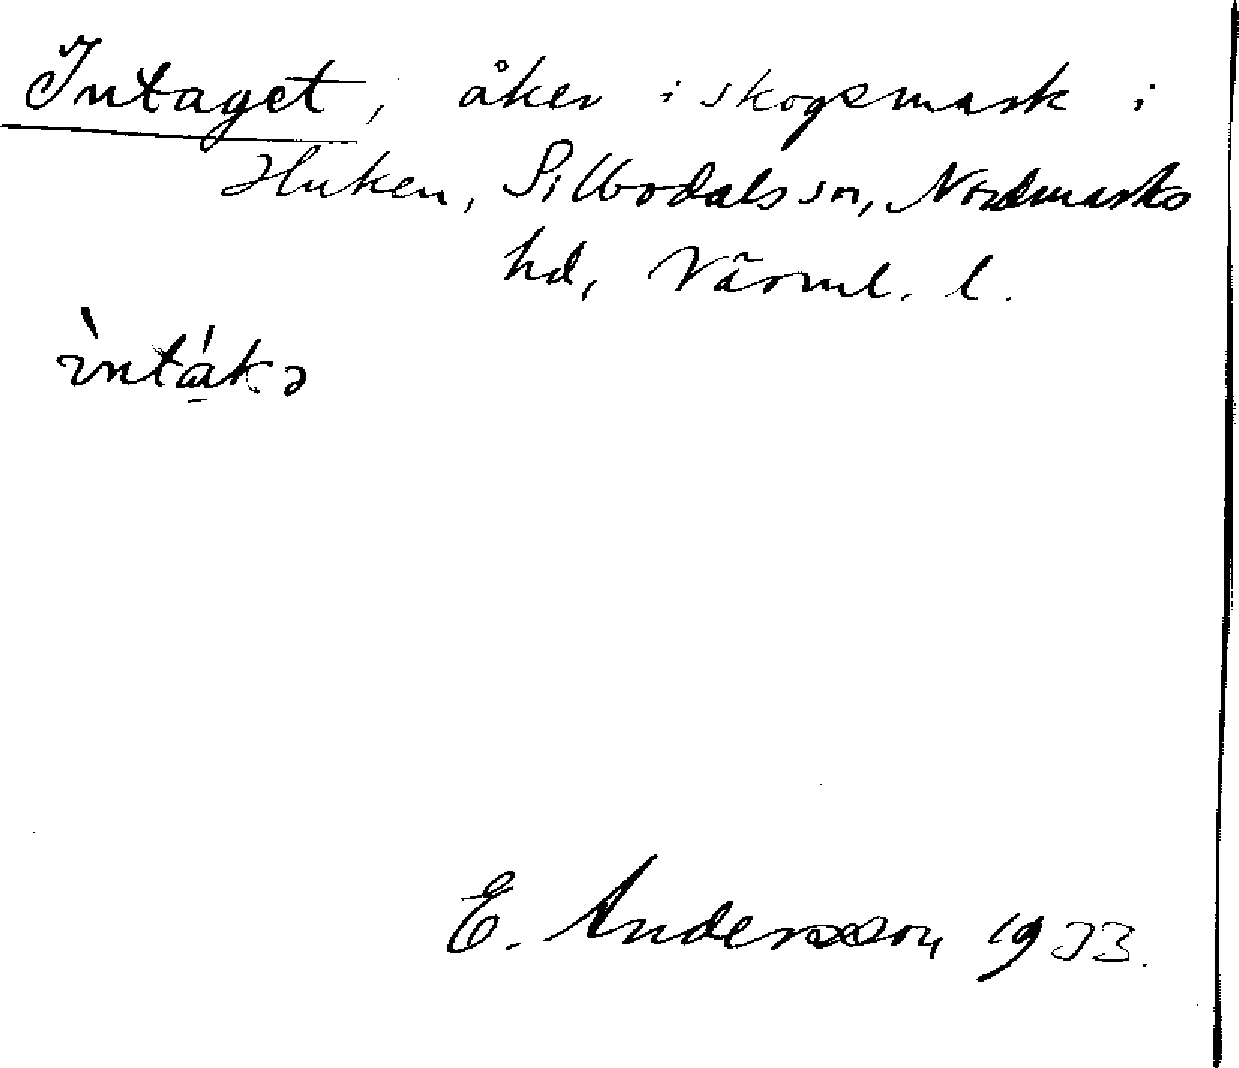 Intaget, åker i skogsmark i
Huken, Silbodals sn, Nordmarks
hd, Värml. l.
ìntákə
E. Andersson 1933.